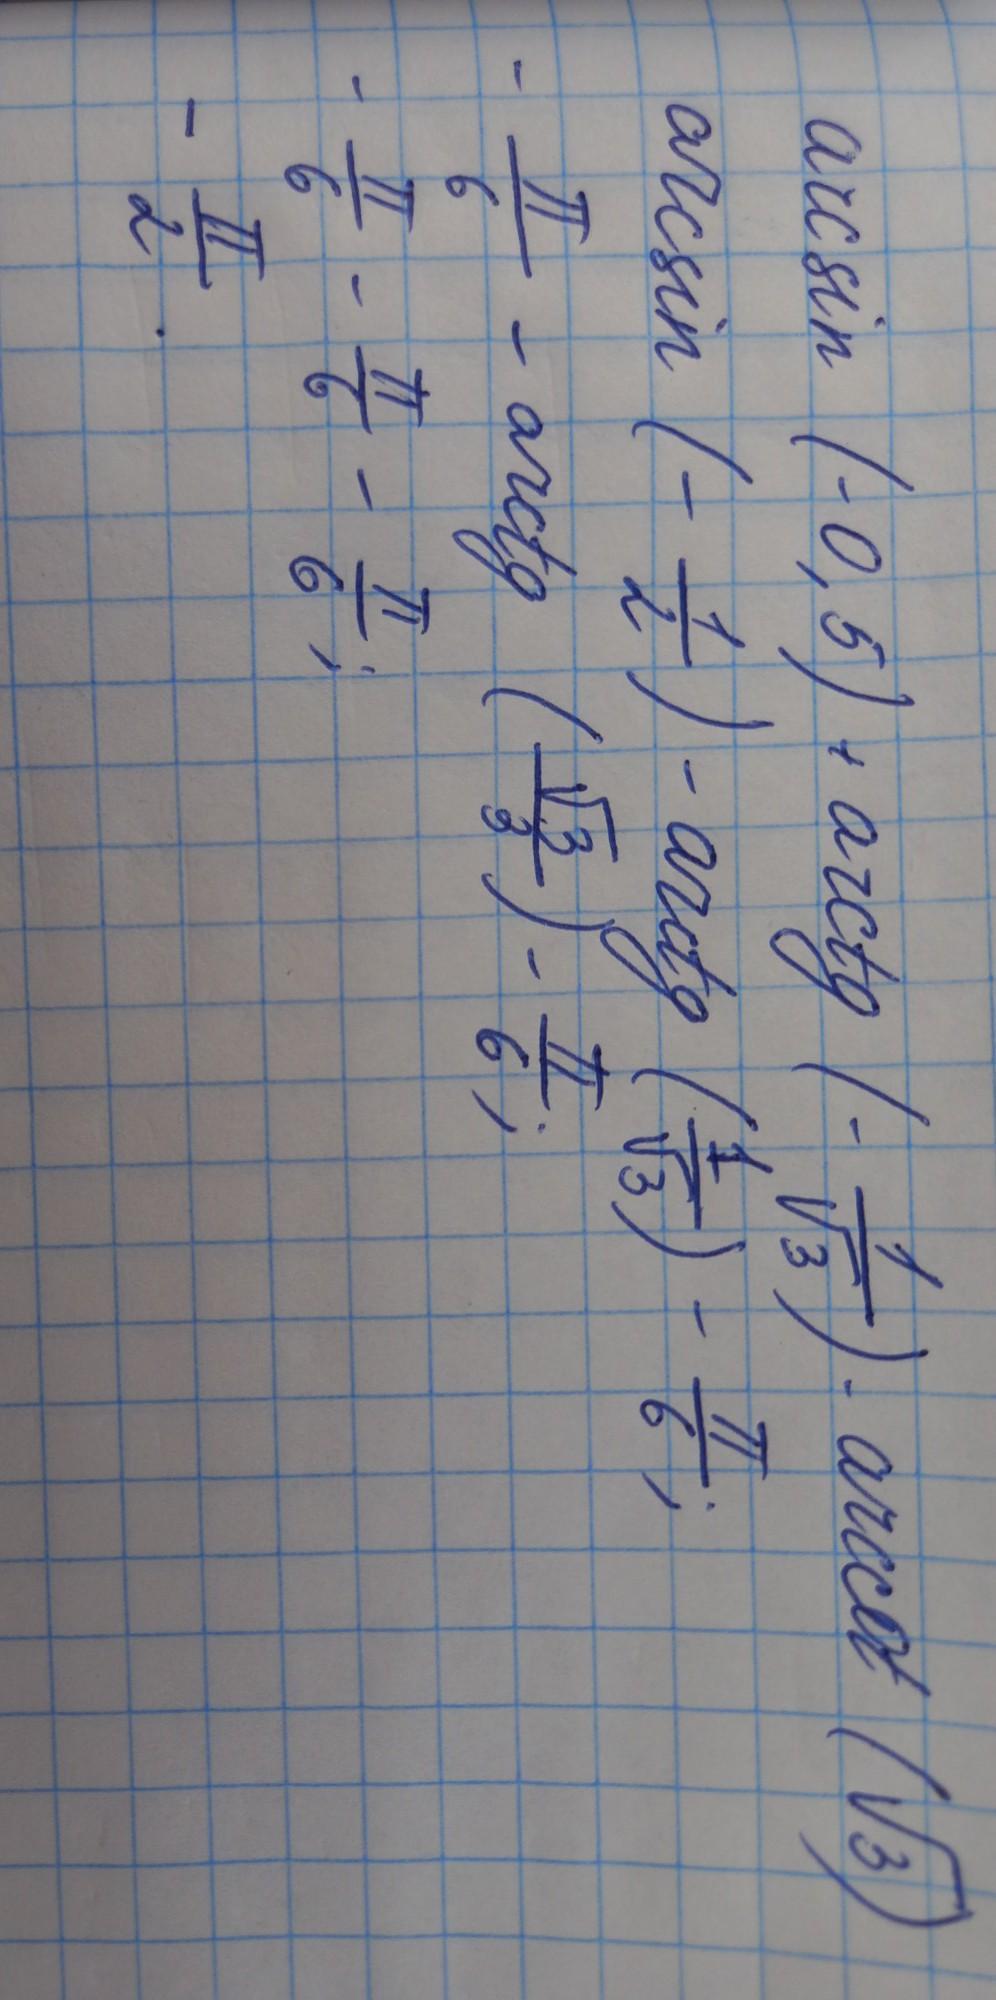 arcsin (-0,5) + arctg (-1/√3) - arccot (√3)
arcsin (-1/2) - arctg (1/√3) - π/6;
- π/6 - arctg (√3/3) - π/6;
- π/6 - π/6 - π/6;
- π/2.